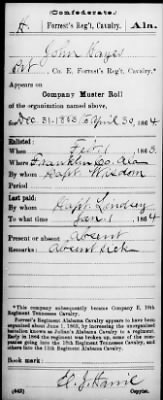 (Confederate.)
H | Forrest's Reg't, Cavalry. | Ala.
John Hayes
Pvt, Co. E, Forrest's Reg't, Cavalry.*
Appears on
Company Muster Roll
of the organization named above,
for Dec 31, 1863 to April 30, 1864
Enlisted:
When Feb 1, 1863.
Where Franklin Co. Ala
By whom Capt. Wisdom
Period
Last paid:
By whom Capt. Lindsey
To what time Jan 1, 1864
Present or absent Absent
Remarks: Absent sick
*This company subsequently became Company E, 18th
Regiment Tennessee Cavalry.
Forrest's Regiment Alabama Cavalry appears to have
been organized about June 1, 1863, by increasing the
battalion known as Julian's Alabama Cavalry to a regiment.
Early in 1864 the regiment was broken up, some of the com-
panies going into the 18th Regiment Tennessee Cavalry, and
others into the 11th Regiment Alabama Cavalry.
Book mark:
(642)
Copyist.